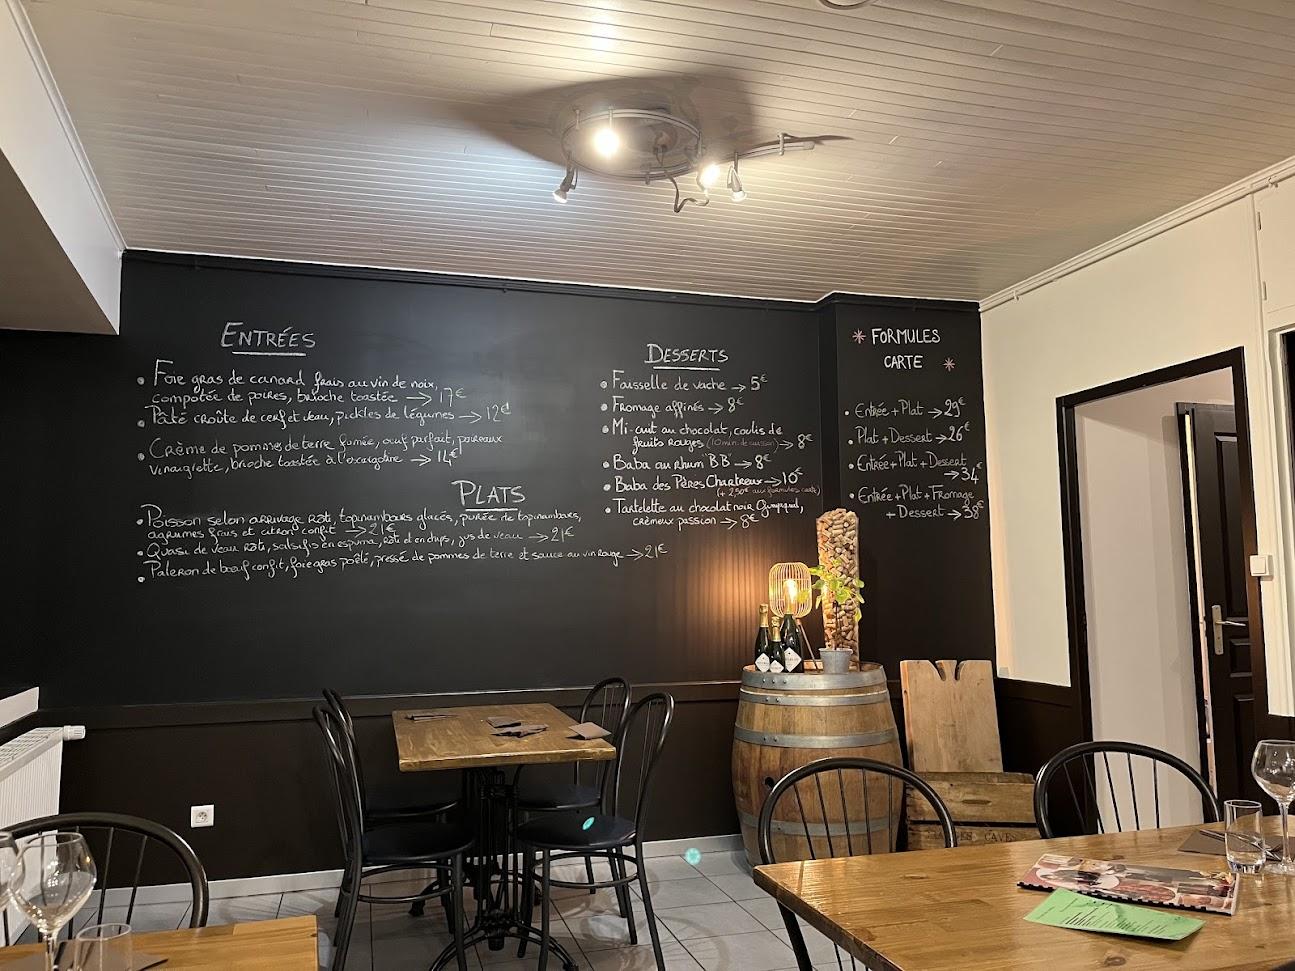 ENTRÉES
Foie gras de canard frais au vin de noix,
compotée de poires, brioche toastée → 17€
Pâté croûte de cerf et veau, pickles de légumes → 12€
Crème de pommes de terre fumée, œuf parfait, poireaux
vinaigrette, brioche toastée à l'escargotine → 14€
PLATS
Poisson selon arrivage rôti, topinambours glacés, purée de topinambours,
agrumes frais et citron confit → 21€
Quasi de veau rôti, salsifis en espuma, rôti et en chips, jus de veau → 21€
Paleron de bœuf confit, foie gras poêlé, pressé de pommes de terre et sauce au vin rouge → 21€
DESSERTS
Faisselle de vache → 5€
Fromage affinés → 8€
Mi-cuit au chocolat, coulis de
fruits rouges (10 min de cuisson) → 8€
Baba au rhum "BB" → 8€
Baba des Pères Chartreux → 10€
(+ 2,50€ aux formules carte)
Tartelette au chocolat noir
crémeux passion → 8€
* FORMULES
CARTE *
Entrée + Plat → 29€
Plat + Dessert → 26€
Entrée + Plat + Dessert
→ 34€
Entrée + Plat + Fromage
+ Dessert → 38€
CAVES